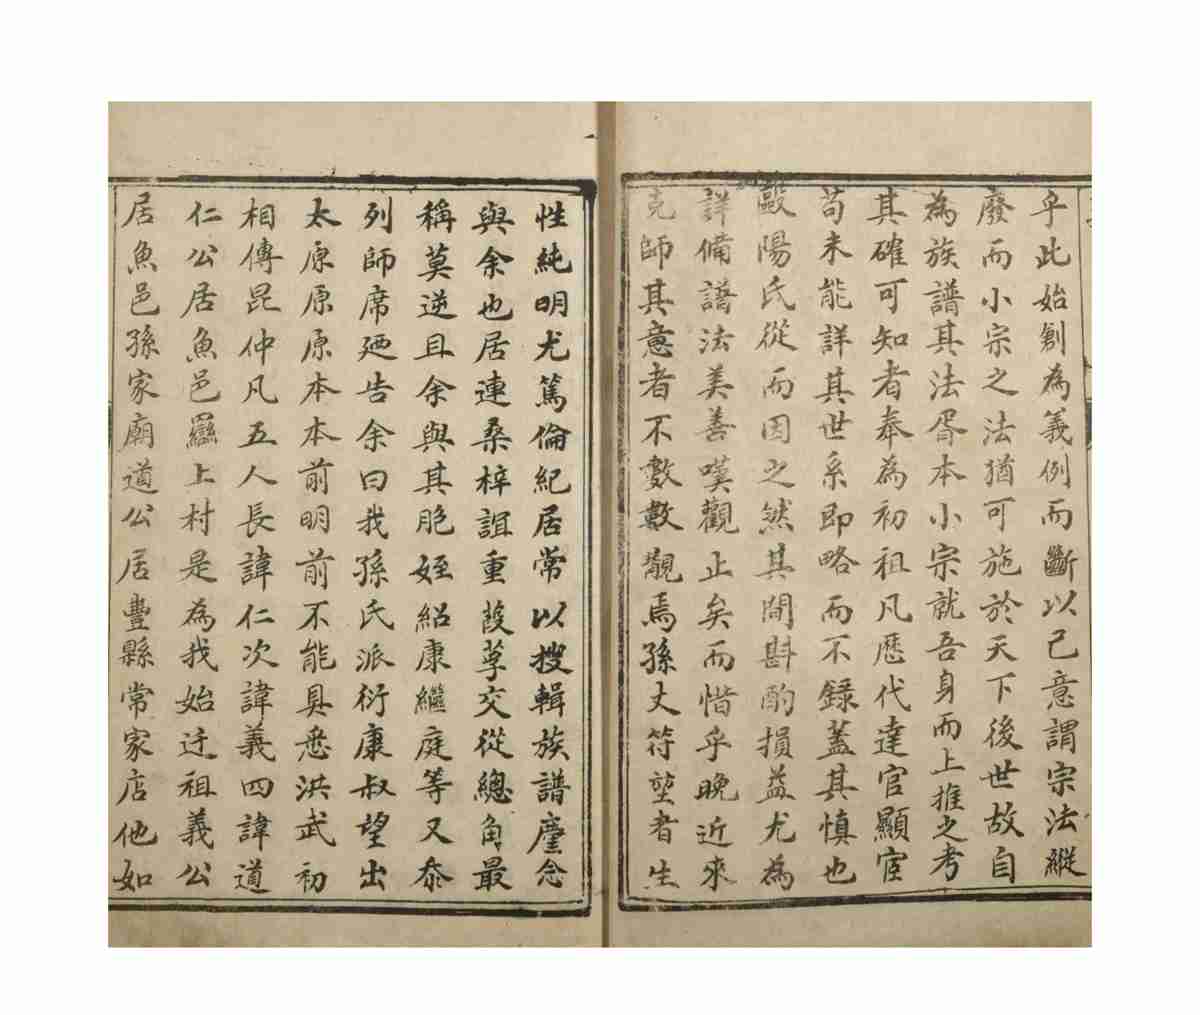 乎此始創為義例而斷以己意謂宗法縱
廢而小宗之法猶可施於天下後世故自
為族譜其法胥本小宗就吾身而上推之考
其確可知者奉為初祖凡歷代達官顯宦
苟未能詳其世系即略而不錄蓋其慎也
歐陽氏從而因之然其間斟酌損益尤為
詳備譜法美善嘆觀止矣而惜乎晚近來
克師其意者不數數覯焉孫丈符堃者生
性純明尤篤倫紀居常以搜輯族譜廑念
與余也居連桑梓誼重葭莩交從總角最
稱莫逆且余與其胞姪紹康繼庭等又忝
列師席廼告余曰我孫氏派衍康叔望出
太原原原本本前明前不能具悉洪武初
相傳昆仲凡五人長諱仁次諱義四諱道
仁公居魚邑羉上村是為我始迁祖義公
居魚邑孫家廟道公居豐縣常家店他如